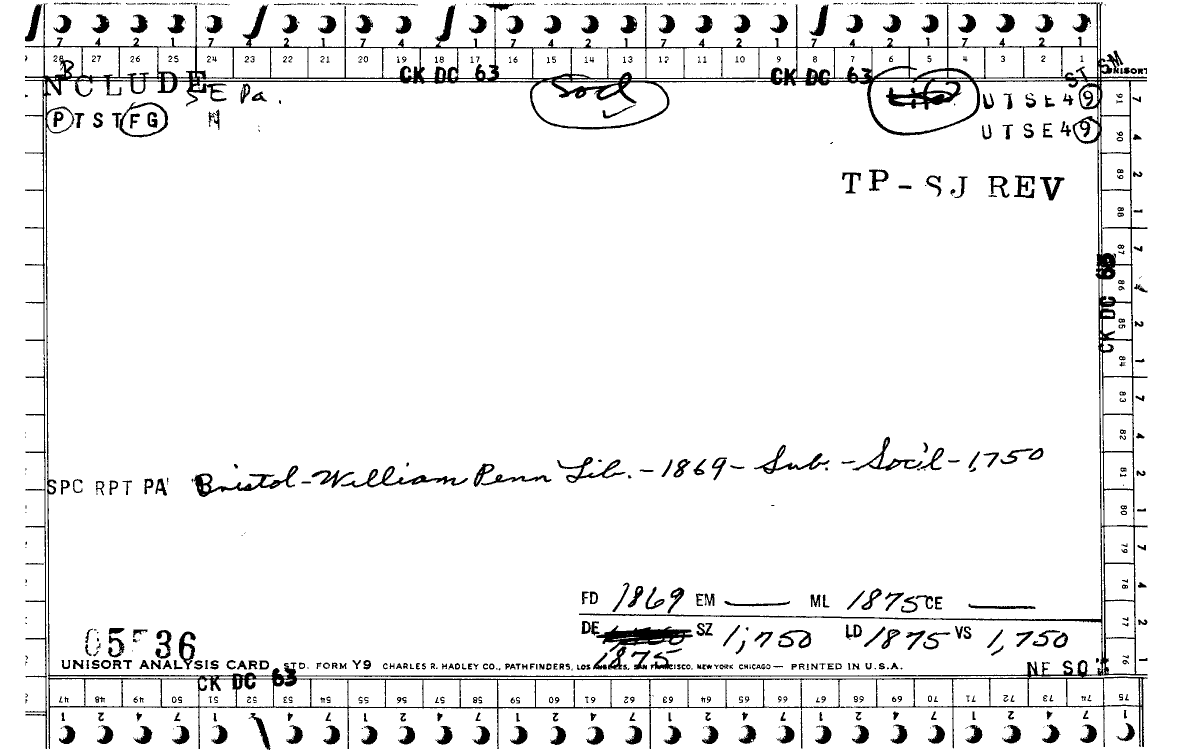 7 4 2 1 7 4 2 1 7 4 2 1 7 4 2 1 7 4 2 1 7 4 2 1 7 4 2 1
28 27 26 25 24 23 22 21 20 19 18 17 16 15 14 13 12 11 10 9 8 7 6 5 4 3 2 1 UNISORT
CK DC 63 CK DC 63 ST SM
INCLUDE S E Pa. Socl UTSE49
PTSTFG N UTSE49
TP-SJ REV
91 90 89 88 87 86 85 84 83 82 81 80 79 78 77 76
7 4 2 1 7 4 2 1 7 4 2 1 7 4 2 1
CK DC 63
SPC RPT PA Bristol-William Penn Lib. -1869- Sub. -Soc'l-1,750
FD 1869 EM — ML 1875 CE —
DE 1875 SZ 1,750 LD 1875 VS 1,750
UNISORT ANALYSIS CARD STD. FORM Y9 CHARLES R. HADLEY CO., PATHFINDERS, LOS ANGELES, SAN FRANCISCO, NEW YORK CHICAGO — PRINTED IN U.S.A.
CK DC 63 NF SO
47 48 49 50 51 52 53 54 55 56 57 58 59 60 61 62 63 64 65 66 67 68 69 70 71 72 73 74 75
1 2 4 7 1 2 4 7 1 2 4 7 1 2 4 7 1 2 4 7 1 2 4 7 1 2 4 7 1